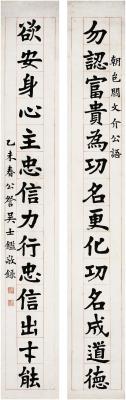 勿認富貴為功名更化功名成道德
朝邑閻文介公語
欲安身心主忠信力行忠信出才能
乙未春公詧吳士鑑敬錄